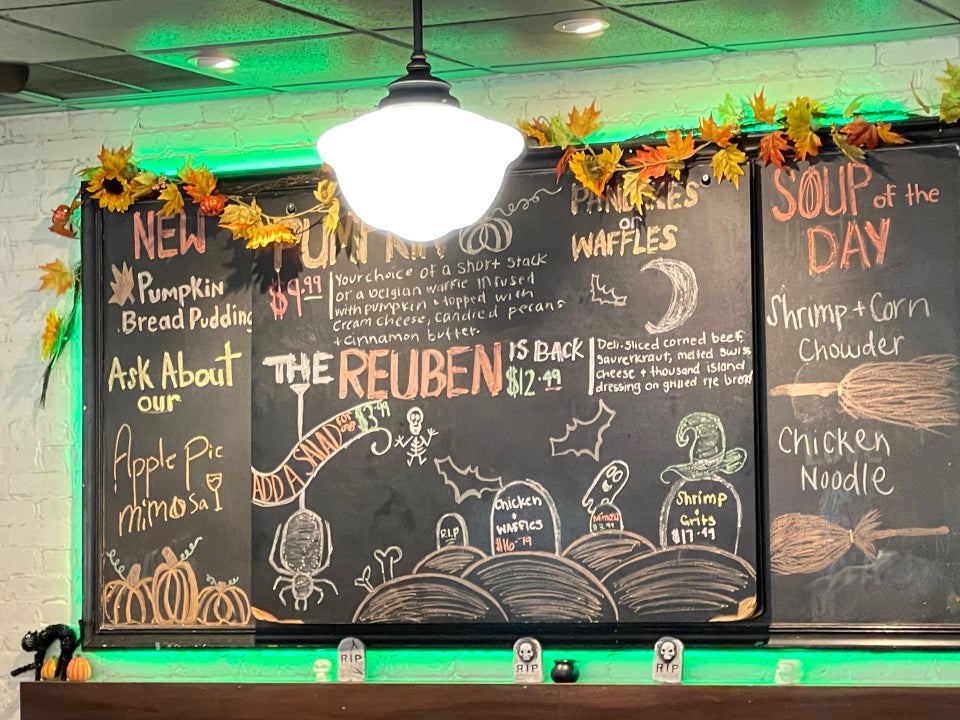 NEW
Pumpkin
Bread Pudding
Ask About
our
Apple Pie
mimosa
PUMPKIN
PANCAKES
or
WAFFLES
$9.99
Your choice of a short stack
or a belgian waffle infused
with pumpkin + topped with
cream cheese, candied pecans
+ cinnamon butter.
THE REUBEN IS BACK
$12.49
Deli-sliced corned beef,
saurerkraut, melted swiss
cheese + thousand island
dressing on grilled rye bread
ADD A SALAD FOR $3.99
R.I.P
Chicken
+
WAFFLES
$16.79
$3.99
Shrimp
+
Grits
$17.49
SOUP of the
DAY
Shrimp + Corn
Chowder
Chicken
Noodle
RIP
RIP
RIP